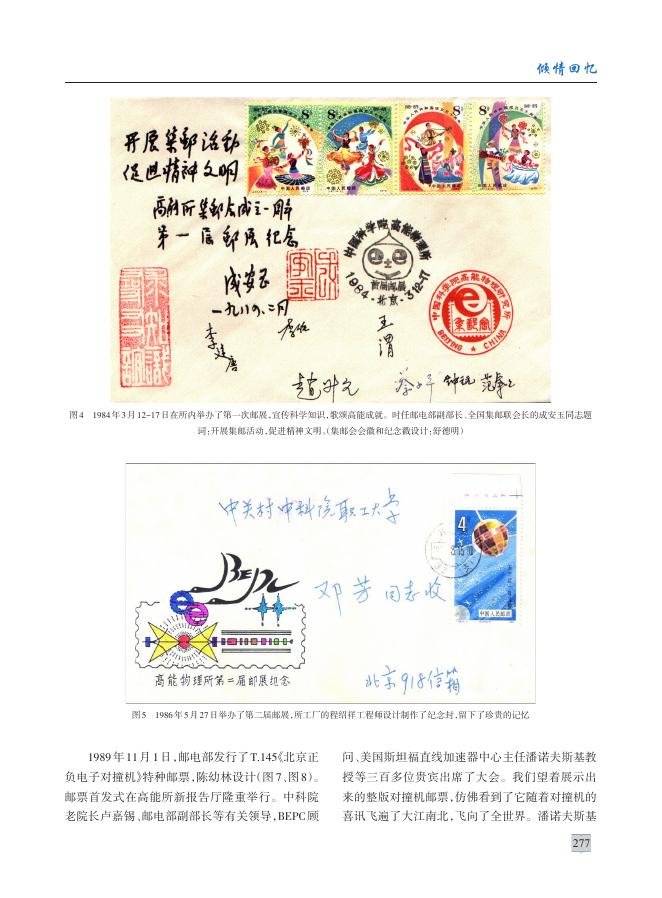 倾情回忆
开展集邮活动
促进精神文明
高能所集邮会成立一周年
第一届邮展纪念
成安玉
一九八四、二月
8分
8分
8分
8分
中国人民邮政
中国人民邮政
中国人民邮政
中国人民邮政
中国科学院高能物理所
首届邮展
1984·北京·3.12-17
中国科学院高能物理研究所
e
集邮会
BEIJING ★ CHINA
王渭
图4 1984年3月12-17日在所内举办了第一次邮展,宣传科学知识,歌颂高能成就。时任邮电部副部长、全国集邮联会长的成安玉同志题
词:开展集邮活动,促进精神文明。(集邮会会徽和纪念戳设计:舒德明)
中关村中科院职工大学
邓芳同志收
北京918信箱
4分
中国人民邮政
BEPC
e
e
高能物理所第二届邮展纪念
图5 1986年5月27日举办了第二届邮展,所工厂的程绍祥工程师设计制作了纪念封,留下了珍贵的记忆
1989年11月1日,邮电部发行了T.145《北京正
负电子对撞机》特种邮票,陈幼林设计(图7、图8)。
邮票首发式在高能所新报告厅隆重举行。中科院
老院长卢嘉锡、邮电部副部长等有关领导,BEPC顾
问、美国斯坦福直线加速器中心主任潘诺夫斯基教
授等三百多位贵宾出席了大会。我们望着展示出
来的整版对撞机邮票,仿佛看到了它随着对撞机的
喜讯飞遍了大江南北,飞向了全世界。潘诺夫斯基
277